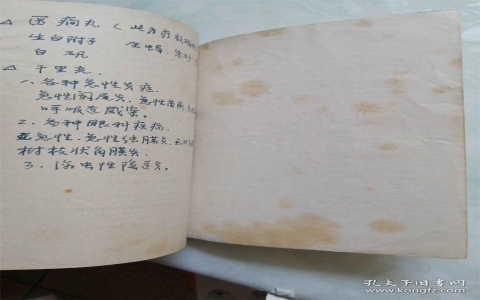 △ 医痫丸(此方症
生白附子 全蝎.朱砂
白矾
△ 千里光.
1、各种急性炎症.
急性扁桃炎.急性菌痢.
呼吸道感染。
2、各种眼科疾病.
急性.急性结膜炎.
树枝状角膜炎.
3、滴虫性阴道炎.
孔夫子旧书网
www.kongfz.com